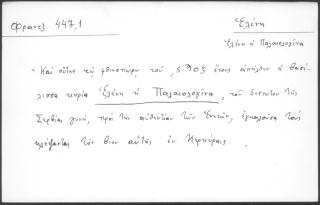 Φραντζ 447,1
Ἑλένη
Ἑλένη ἡ Παλαιολογίνα
"Καὶ οὕτως τῷ φθινοπώρῳ τοῦ ,ϛϠοξ ἔτους ἀπῆλθεν ἡ βασί-
λισσα κυρία Ἑλένη ἡ Παλαιολογίνα, τοῦ δεσπότου τῆς
Σερβίας γυνή, πρὸς τὴν αὐθεντίαν τῶν Ἑνετῶν, ἐγκαλοῦσα τοὺς
κλέψαντας τὸν βίον αὐτῆς ἐν Κερκύραις.